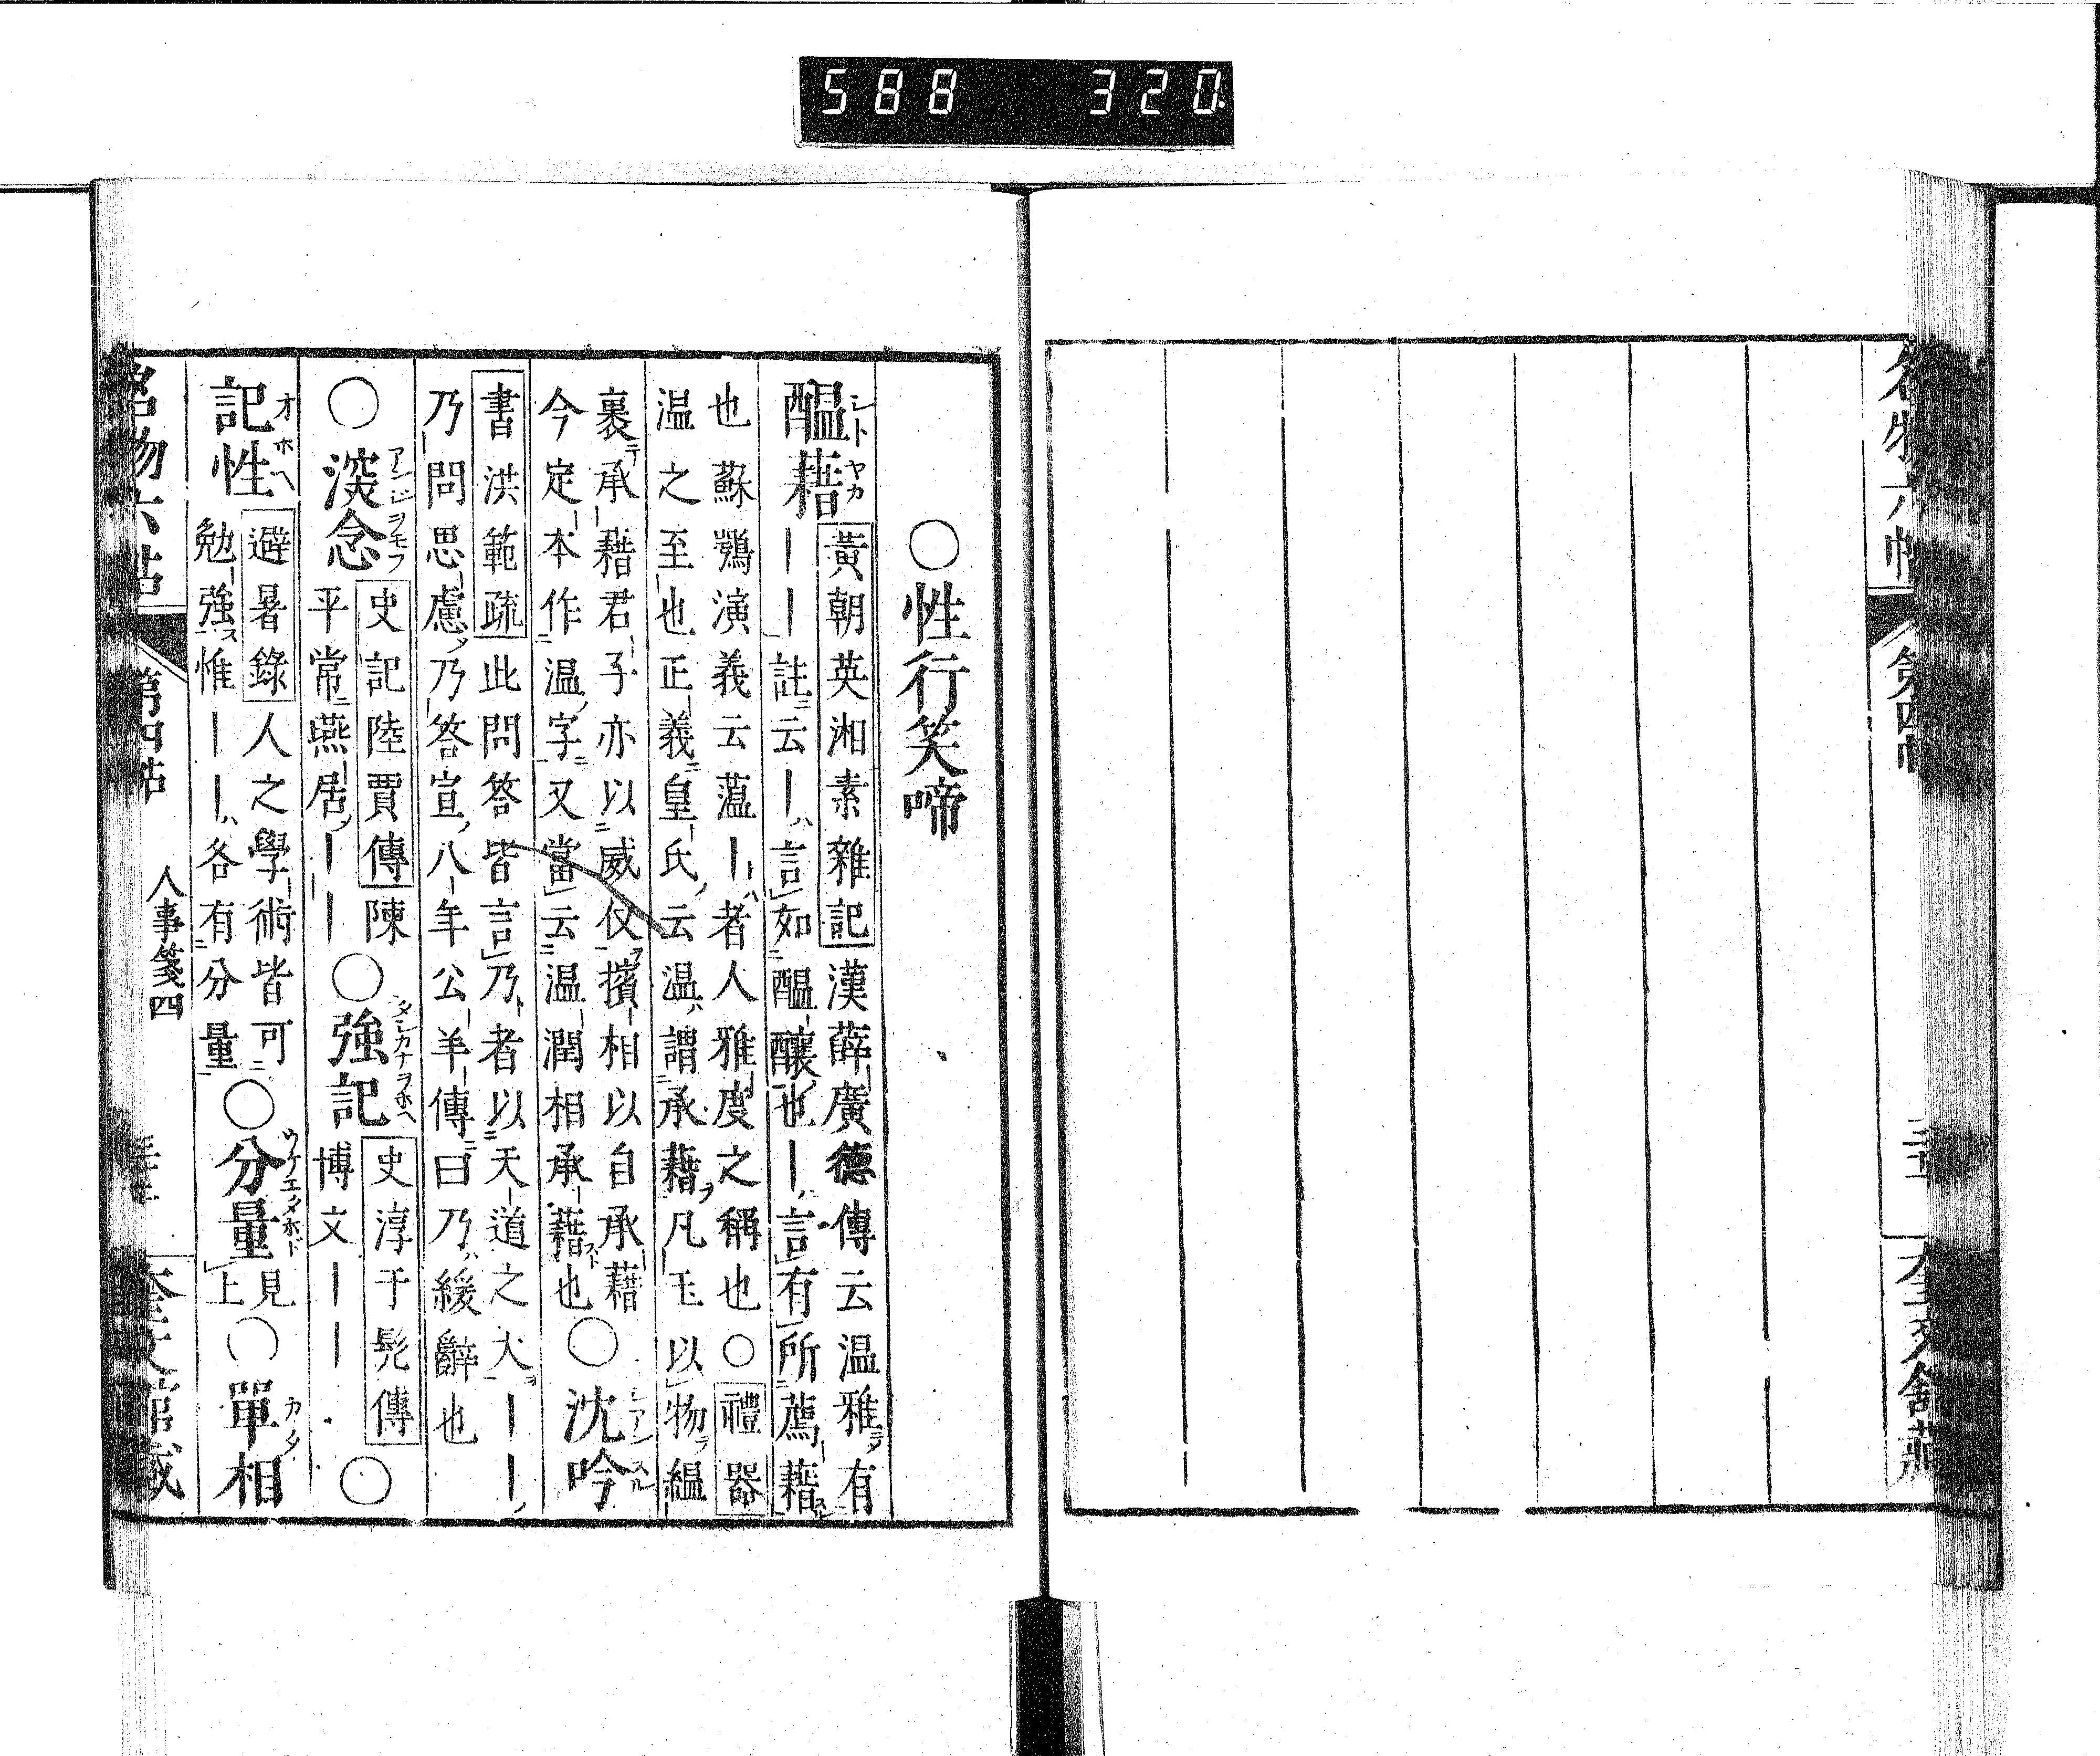 588 320
名物六帖 第四帖 奎文舘藏
○性行笑啼
醞藉 シトヤカ
黃朝英湘素雜記漢薛廣德傳云温雅有
｜｜註云｜言如醞釀也｜言有所薦藉
也蘇鶚演義云藴｜者人雅度之稱也○禮器
温之至也正義皇氏云温謂承藉凡玉以物緼
裹承藉君子亦以威仪擯相以自承藉
今定本作温字又當云温潤相承藉也○沈吟
書洪範疏此問答皆言乃者以天道之大｜｜
乃問思慮乃答宣八年公羊傳曰乃緩辭也
○深念 アンジヲモフ
史記陸賈傳陳
平常燕居｜｜
○強記
史淳于髠傳
博文｜｜
○
記性 オホヘ
避暑錄人之學術皆可
勉強惟｜｜各有分量
○分量 ウケエタホド
見
上
○單相 カタ
名物六帖 第四帖 人事箋四 奎文舘藏